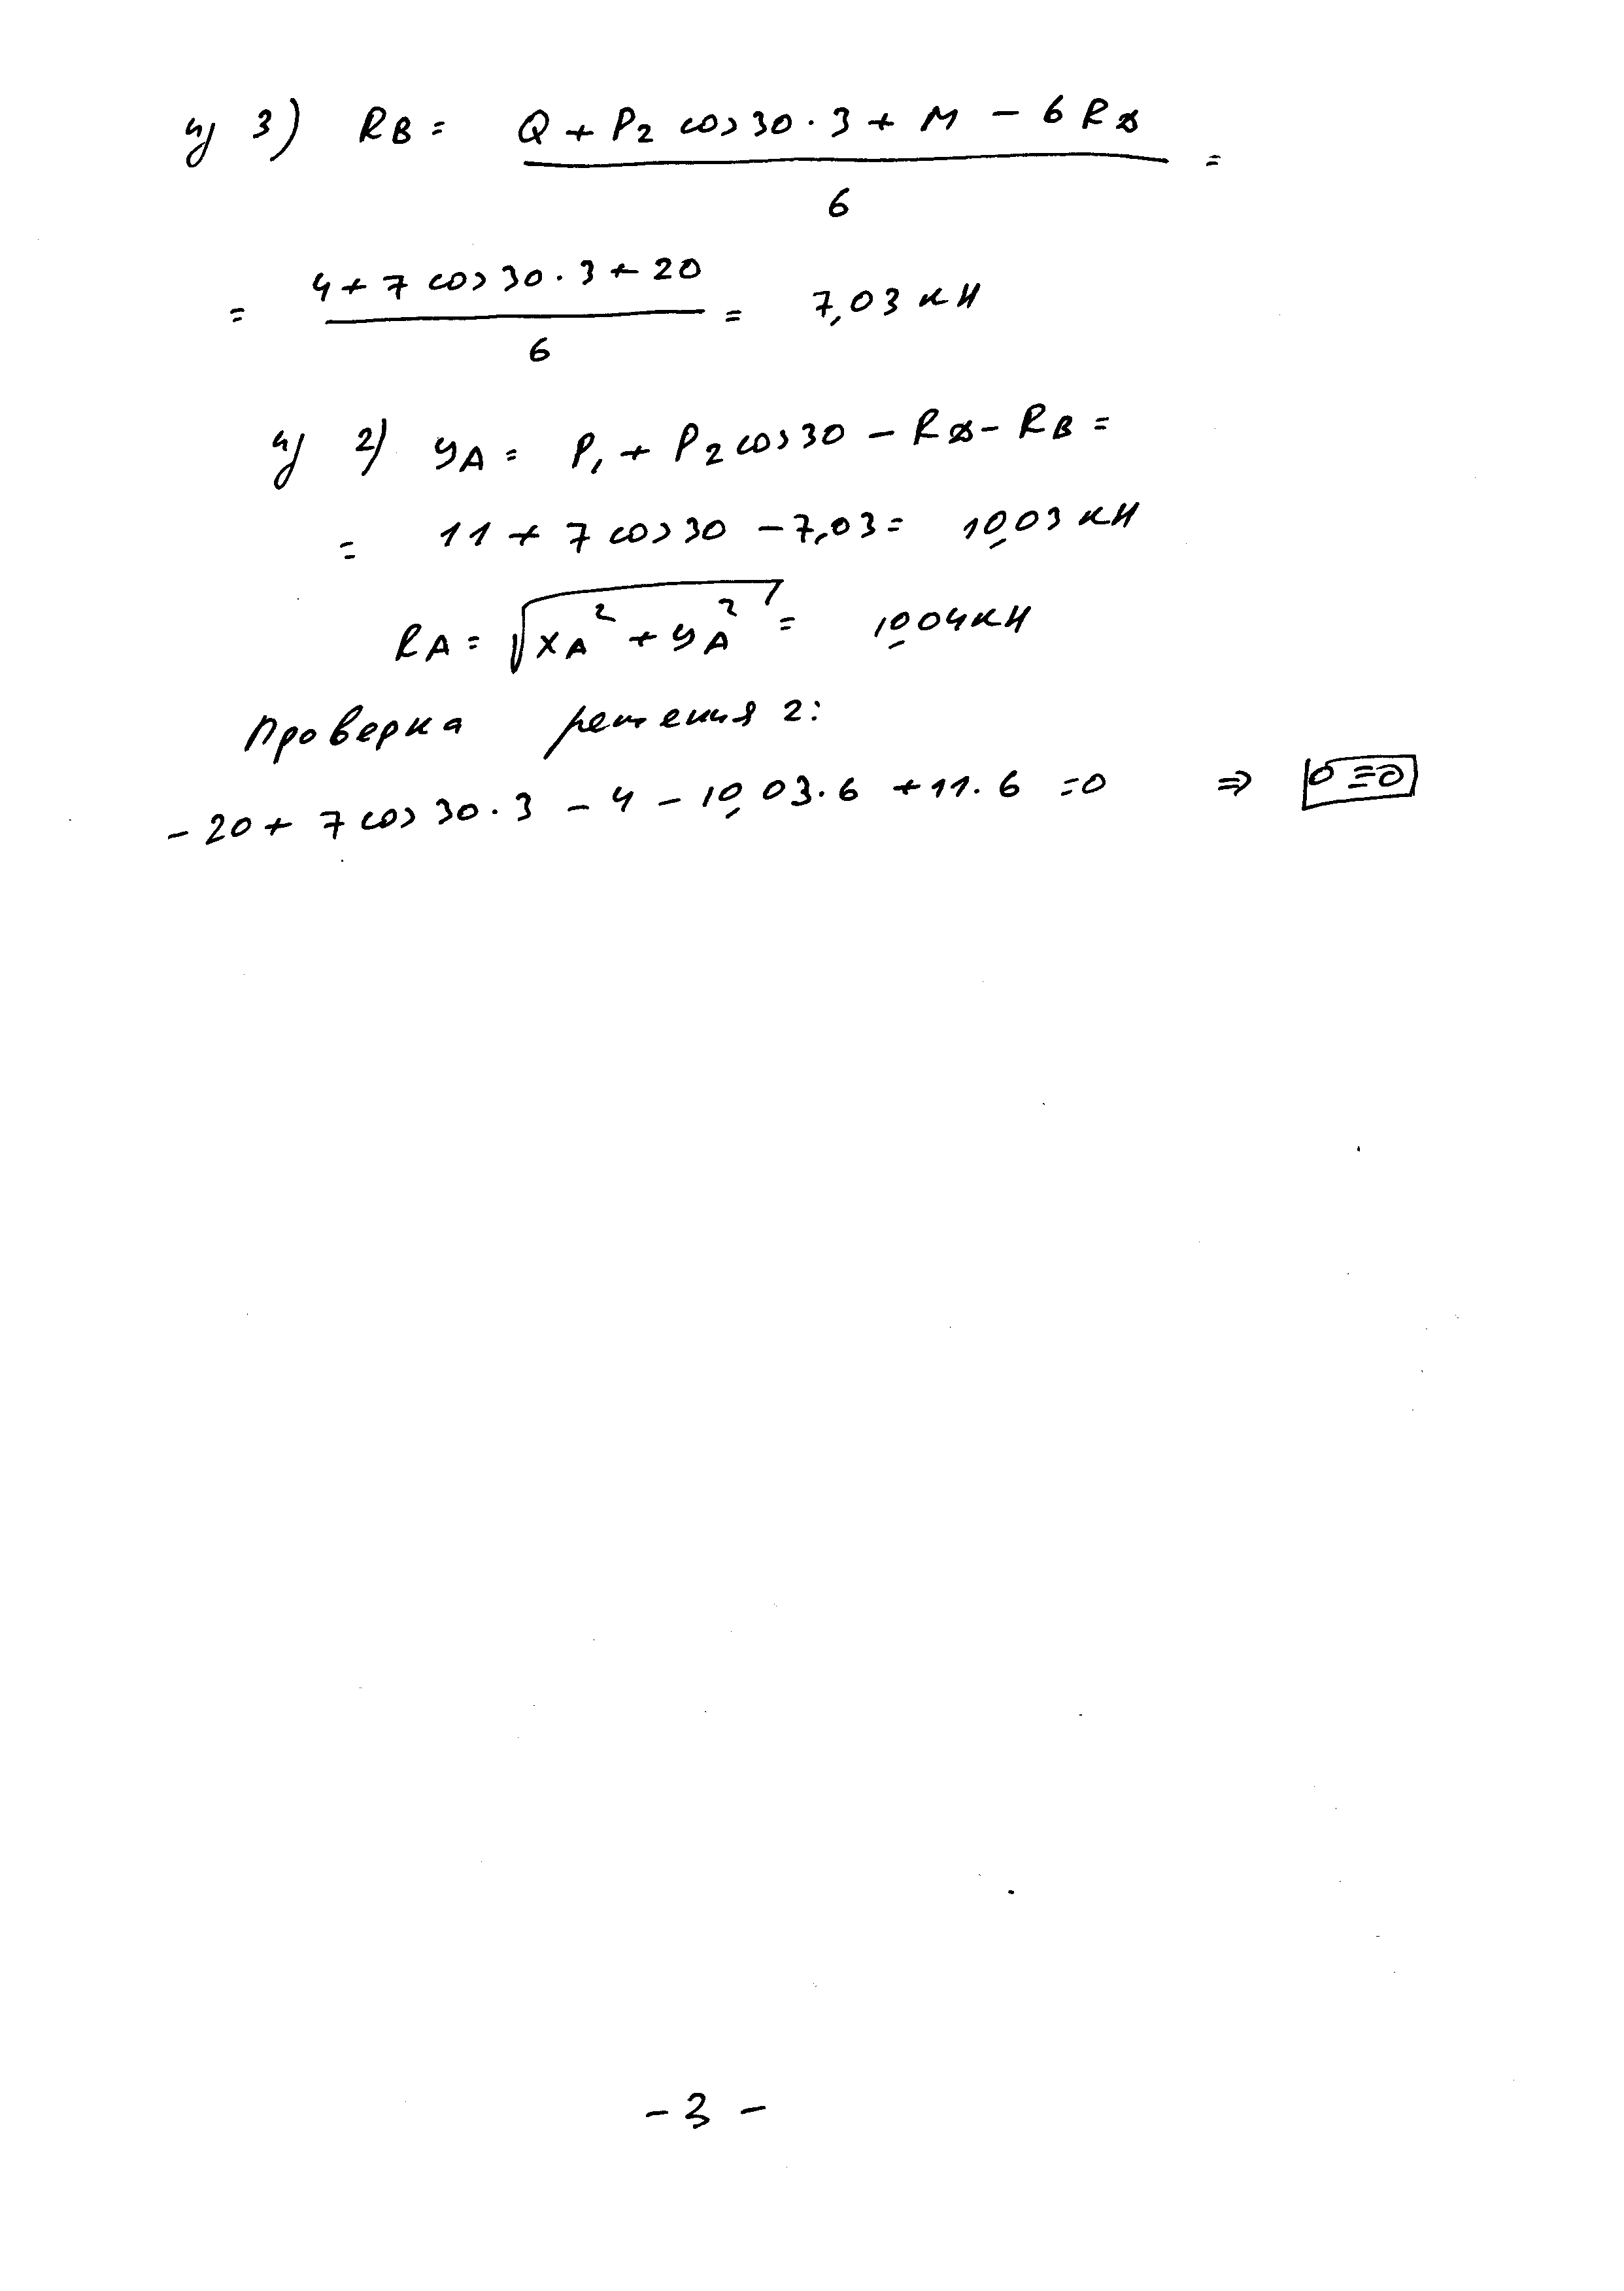 из 3) RB = Q + P2 cos30·3 + M - 6RД =
6
= 4 + 7 cos30·3 + 20 = 7,03 кН
6
из 2) yA = P1 + P2 cos30 - RД - RB =
= 11 + 7 cos30 - 7,03 = 10,03 кН
RA = √xA² + yA² = 10,04 кН
Проверка решения 2:
-20 + 7 cos30·3 - 4 - 10,03·6 + 11·6 = 0 ⇒ 0 ≡ 0
- 3 -